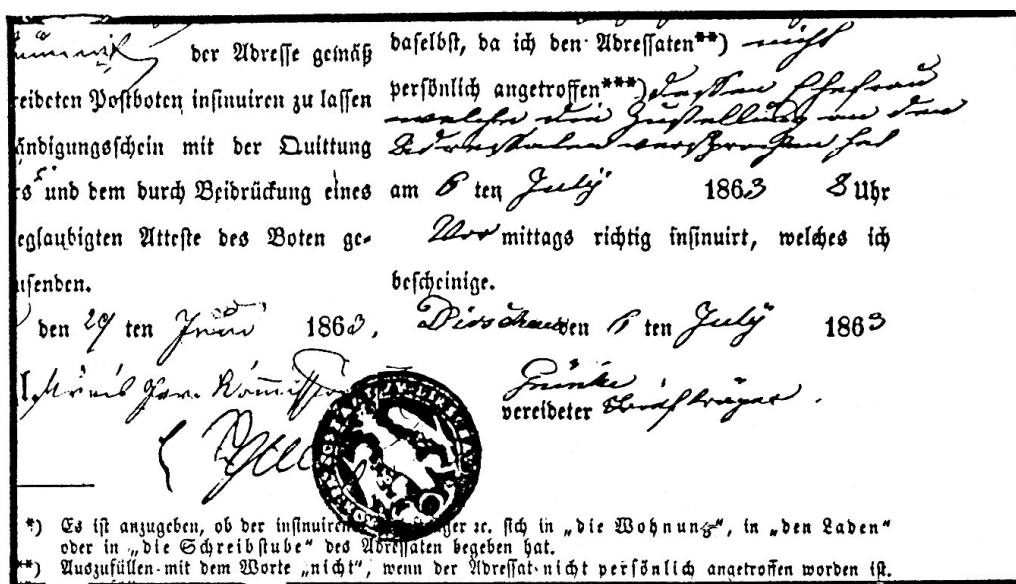 der Adresse gemäß
reideten Postboten insinuiren zu lassen
ändigungsschein mit der Quittung
rs und dem durch Beidrückung eines
eglaubigten Atteste des Boten ge-
usenden.
den 29 ten Juni 1863.
l. Kreis Ger. Kommission
daselbst, da ich den Adressaten**) nicht
persönlich angetroffen***) dessen Ehefrau
welche die Zustellung an den
Adressaten versprochen hat
am 6 ten July 1863 8 Uhr
Vor mittags richtig insinuirt, welches ich
bescheinige.
Dirschau den 6 ten July 1863
vereideter Briefträger.
*) Es ist anzugeben, ob der insinuirende ger ꝛc. sich in „die Wohnung“, in „den Laden“
oder in „die Schreibstube“ des Adressaten begeben hat.
**) Auszufüllen mit dem Worte „nicht“, wenn der Adressat nicht persönlich angetroffen worden ist.